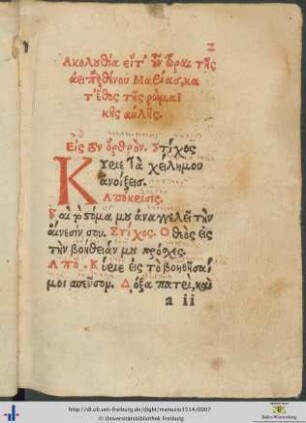 Ακολουθία εἰς τ' ὥρας τῆς
ἀειπαρθένου Μαρίας, κα
τ' ἔθος τῆς ρωμαϊ
κῆς αὐλῆς.
Εἰς τὸν ὄρθρον. Στίχος
Κύριε τὰ χείλη μου
ἀνοίξεις.
Απόκρισις.
Καὶ τὸ στόμα μου ἀναγγελεῖ τὴν
αἴνεσίν σου. Στίχος. Ο θεὸς εἰς
τὴν βοήθειάν μου πρόσχες.
Από. Κύριε εἰς τὸ βοηθῆσαί
μοι σπεῦσον. Δόξα πατρὶ, καὶ
a ii
http://dl.ub.uni-freiburg.de/diglit/manuzio1514/0007
© Universitätsbibliothek Freiburg
Baden-Württemberg